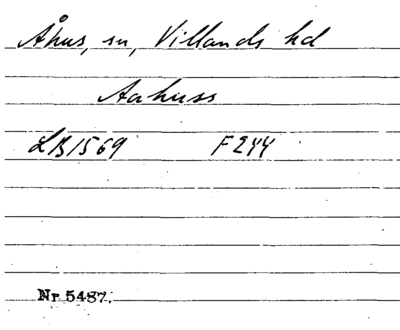 Åhus, sn, Villands hd
Aahuss
LB1569 F244
Nr 5487.